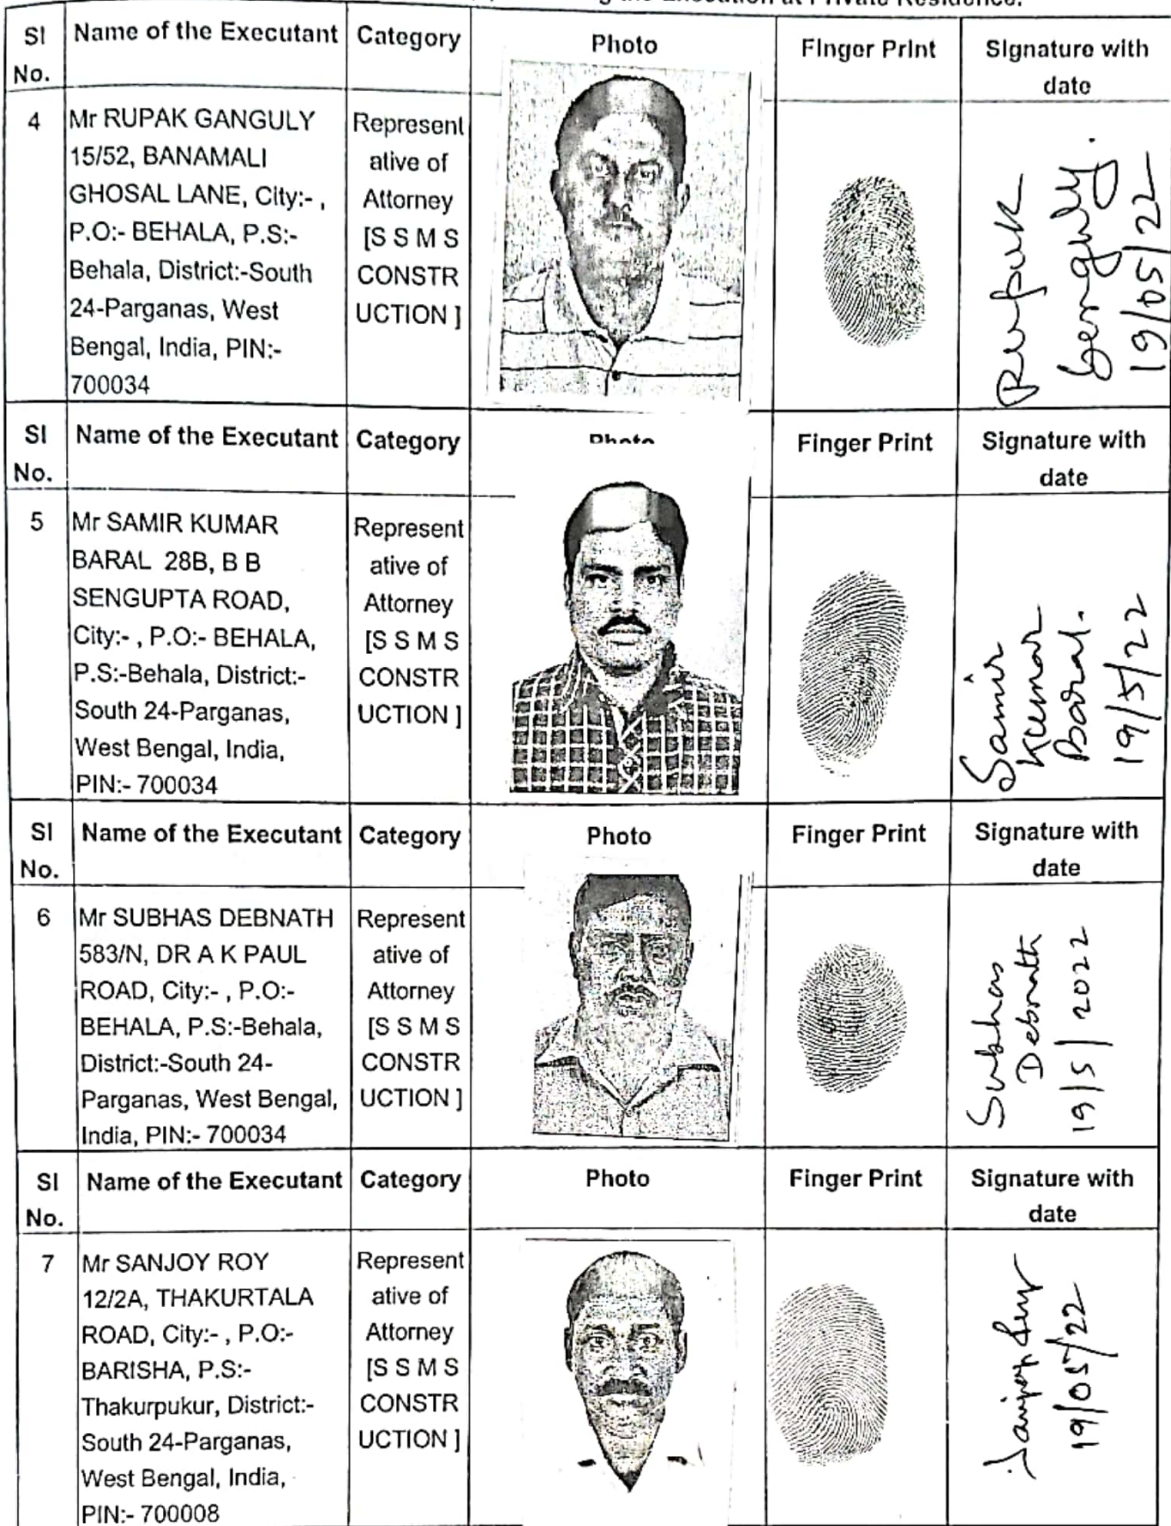 the Execution at Private Residence.
Sl No. Name of the Executant Category Photo Finger Print Signature with date
4
Mr RUPAK GANGULY
15/52, BANAMALI
GHOSAL LANE, City:- ,
P.O:- BEHALA, P.S:-
Behala, District:-South
24-Parganas, West
Bengal, India, PIN:-
700034
Represent
ative of
Attorney
[S S M S
CONSTR
UCTION ]
Rupak
Ganguly.
19/05/22
Sl No. Name of the Executant Category Photo Finger Print Signature with date
5
Mr SAMIR KUMAR
BARAL 28B, B B
SENGUPTA ROAD,
City:- , P.O:- BEHALA,
P.S:-Behala, District:-
South 24-Parganas,
West Bengal, India,
PIN:- 700034
Represent
ative of
Attorney
[S S M S
CONSTR
UCTION ]
Samir
Kumar
Baral.
19/5/22
Sl No. Name of the Executant Category Photo Finger Print Signature with date
6
Mr SUBHAS DEBNATH
583/N, DR A K PAUL
ROAD, City:- , P.O:-
BEHALA, P.S:-Behala,
District:-South 24-
Parganas, West Bengal,
India, PIN:- 700034
Represent
ative of
Attorney
[S S M S
CONSTR
UCTION ]
Subhas
Debnath
19/5/2022
Sl No. Name of the Executant Category Photo Finger Print Signature with date
7
Mr SANJOY ROY
12/2A, THAKURTALA
ROAD, City:- , P.O:-
BARISHA, P.S:-
Thakurpukur, District:-
South 24-Parganas,
West Bengal, India,
PIN:- 700008
Represent
ative of
Attorney
[S S M S
CONSTR
UCTION ]
Sanjoy Roy
19/05/22